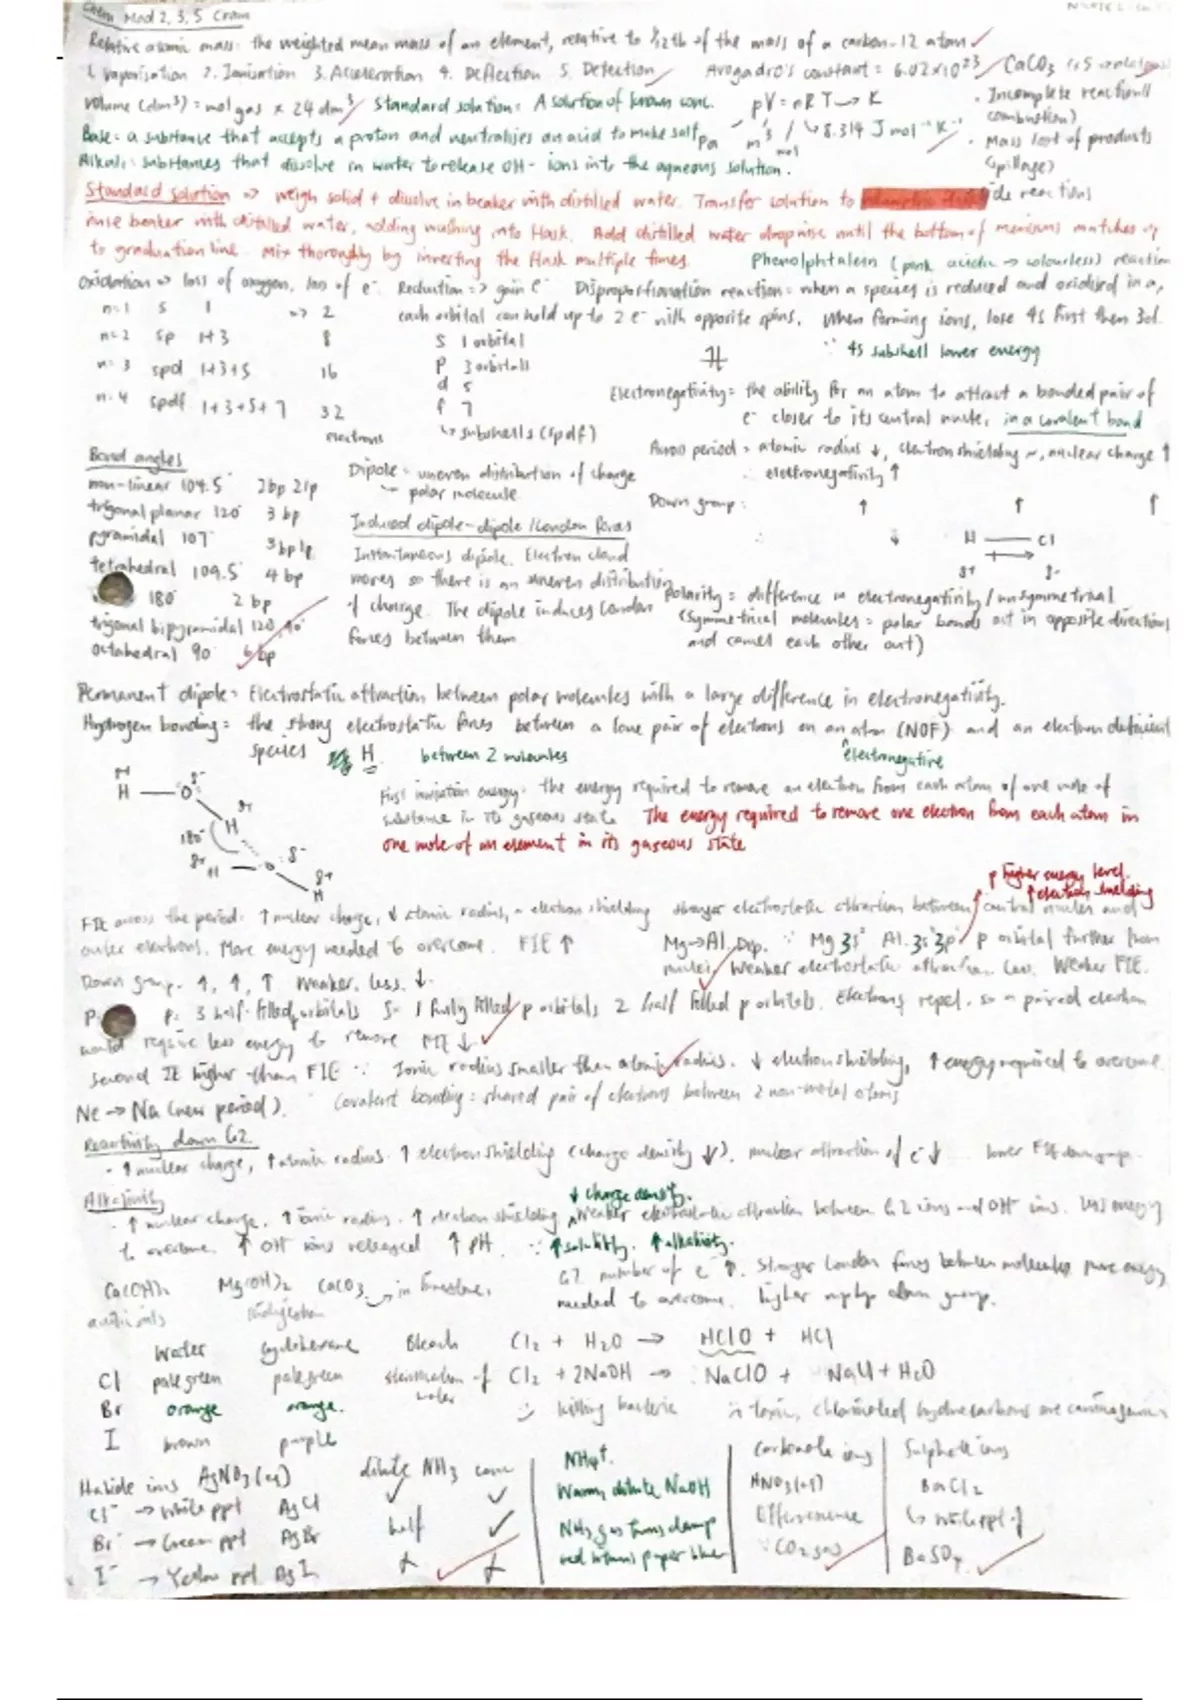 Chem Mod 2, 3, 5 Cram
Relative atomic mass: the weighted mean mass of an element, relative to 1/12th of the mass of a carbon-12 atom
1. vaporisation 2. Ionisation 3. Acceleration 4. Deflection 5. Detection Avogadro's constant = 6.02×10²³ CaCO₃
Volume (dm³) = mol gas × 24 dm³ Standard solution: A solution of known conc. pV = nRT → K
· Incomplete reaction (combustion)
Base: a substance that accepts a proton and neutralises an acid to make salt Pa m³ mol 8.314 J mol⁻¹ K⁻¹
· Mass lost of products (spillage)
Alkali: substances that dissolve in water to release OH- ions into the aqueous solution.
Standard solution => weigh solid + dissolve in beaker with distilled water. Transfer solution to
side reactions
rinse beaker with distilled water, adding washing into flask. Add distilled water dropwise until the bottom of meniscus matches up
to graduation line. Mix thoroughly by inverting the flask multiple times. Phenolphtalein (pink → colourless) reaction
Oxidation => loss of oxygen, loss of e⁻. Reduction => gain e⁻ Disproportionation reaction = when a species is reduced and oxidised in a,
n=1 s 1 => 2 each orbital can hold up to 2 e⁻ with opposite spins. When forming ions, lose 4s first then 3d.
n=2 sp 1+3 8 s 1 orbital ∵ 4s subshell lower energy
n=3 spd 1+3+5 16 p 3 orbitals
d 5
n=4 spdf 1+3+5+7 32 f 7
electrons ↳ subshells (spdf)
Electronegativity = the ability for an atom to attract a bonded pair of
e⁻ closer to its central nuclei in a covalent bond
Across period = atomic radius ↓, electron shielding ~, nuclear charge ↑
∴ electronegativity ↑
Down group: ↑ ↑ ↑
∴ ↓
H — Cl
δ+ δ-
Bond angles
non-linear 104.5° 2bp 2lp
trigonal planar 120° 3 bp
pyramidal 107° 3bp lp
tetrahedral 109.5° 4 bp
180° 2 bp
trigonal bipyramidal 120, 90°
octahedral 90° 6 bp
Dipole = uneven distribution of charge
polar molecule
Induced dipole-dipole / London forces
Instantaneous dipole. Electron cloud
moves so there is an uneven distribution
of charge. The dipole induces London
forces between them
Polarity = difference in electronegativity / unsymmetrical
(Symmetrical molecules = polar bonds act in opposite directions
and cancel each other out)
Permanent dipole = Electrostatic attraction between polar molecules with a large difference in electronegativity.
Hydrogen bonding = the strong electrostatic forces between a lone pair of electrons on an atom (NOF) and an electron deficient
species H between 2 molecules electronegative
H
H — O δ-
δ+
H
180°
δ+ H O δ-
δ+
H
First ionisation energy: the energy required to remove an electron from each atom of one mole of
substance in its gaseous state The energy required to remove one electron from each atom in
one mole of an element in its gaseous state
p higher energy level.
↑ electron shielding
FIE across the period: ↑ nuclear charge, ↓ atomic radius, ~ electron shielding stronger electrostatic attraction between central nuclei and
outer electrons. More energy needed to overcome. FIE ↑ Mg→Al Dip. ∵ Mg 3s² Al 3s²3p¹ p orbital further from
nuclei, weaker electrostatic attraction. Less. Weaker FIE.
Down group. ↑, ↑, ↑ weaker, less, ↓.
P: 3 half-filled p orbitals S: 1 fully filled p orbitals, 2 half filled p orbitals. Electrons repel, so a paired electron
would require less energy to remove FIE ↓
Second IE higher than FIE ∵ Ionic radius smaller than atomic radius. ↓ electron shielding, ↑ energy required to overcome.
Ne → Na (new period). Covalent bonding = shared pair of electrons between 2 non-metal atoms
Reactivity down G2.
· ↑ nuclear charge, ↑ atomic radius ↑ electron shielding (charge density ↓), nuclear attraction of e⁻ ↓ lower FIE down group.
Alkalinity
↓ charge density.
· ↑ nuclear charge, ↑ ionic radius, ↑ electron shielding, weaker electrostatic attraction between G2 ions and OH⁻ ions. less energy
to overcome. ↑ OH⁻ ions released ↑ pH ∵ ↑ solubility. ↑ alkalinity.
Ca(OH)₂ Mg(OH)₂ CaCO₃ in limestone.
antiacids indigestion
G7 number of e⁻ ↑. Stronger London forces between molecules more energy
needed to overcome. higher down group.
Water Cyclohexane Bleach Cl₂ + H₂O → HClO + HCl
Cl pale green pale green sterilisation of water Cl₂ + 2NaOH → NaClO + NaCl + H₂O
Br orange orange. killing bacteria toxic, chlorinated hydrocarbons are carcinogenic
I brown purple
Halide ions AgNO₃(aq) dilute NH₃ conc
Cl⁻ → White ppt AgCl ✓ ✓
Br⁻ → Cream ppt AgBr half ✓
I⁻ → Yellow ppt AgI ✗ ✗
NH₄⁺.
Warm, dilute NaOH
NH₃ gas turns damp
red litmus paper blue
Carbonate ions
HNO₃(aq)
Effervescence
∵ CO₂ gas
Sulphate ions
BaCl₂
↳ white ppt of
BaSO₄